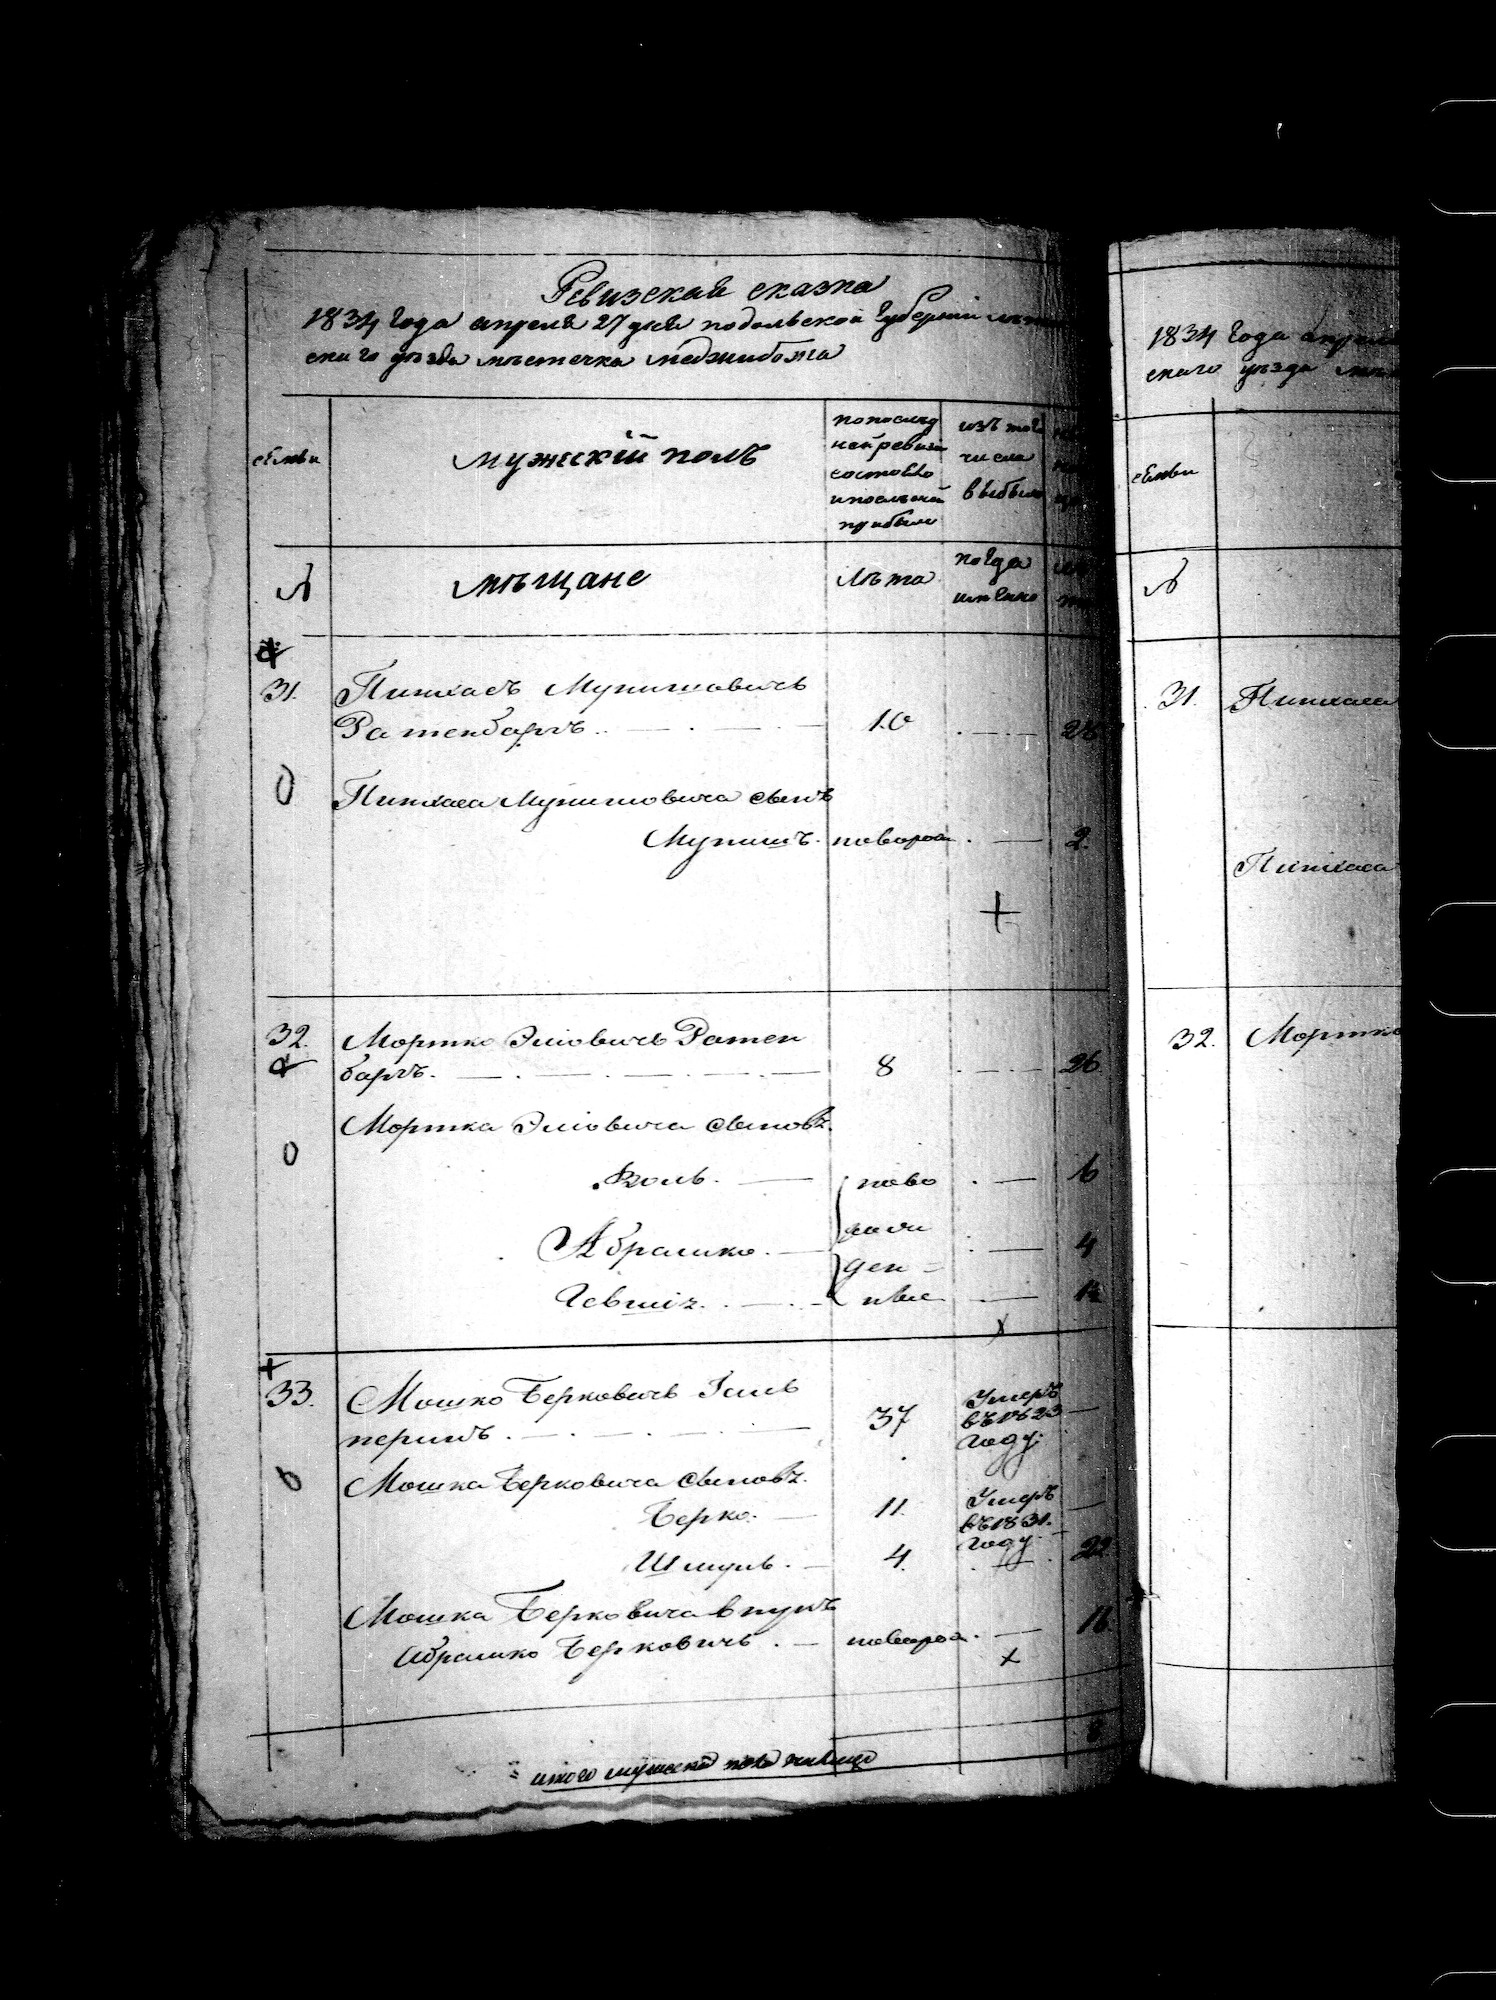 Ревизская сказка
1834 года апреля 27 дня подольской Губернии
скаго уезда мѣстечка меджибожа
семьи
мужескій полъ
по послѣд
ней ревизіи
состояло
и послѣ оной
прибыло
изъ того
числа
выбыло
№
мѣщане
лѣта
когда
имянно
31. Пинхасъ Мунишовичъ
Ратенбаргъ 10
Пинхаса Мунишовича сынъ
Мунишъ новорож 2.
32. Мортко Эліовичъ Ратен
баргъ. 8 26
Мортка Эліовича сыновъ.
ново 6
Абрамко. рож 4
ден
ные
33. Мошко Берковичъ Галь
перинъ. 37 Умеръ
въ 1823
году
Мошка Берковича сыновъ.
Берко. 11. Умеръ
въ 1831.
году
Шмуль. 4. 22
Мошка Берковича внукъ
Абрамко Берковичъ. новорож. 16
итого мужеска пола налицо 8
1834 Года апреля
скаго уезда
семьи
№
31. Пинхаса
Пинхаса
32. Мортко